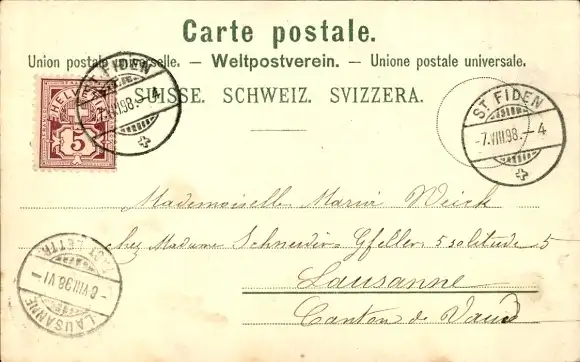 Carte postale.
Union postale universelle. — Weltpostverein. — Unione postale universale.
SUISSE. SCHWEIZ. SVIZZERA.
HELVETIA
5
ST FIDEN
-7.VIII.98.-4
ST FIDEN
-7.VIII.98.-4
Mademoiselle Marie
chez Madame Schneider Gfeller 5 solitude 5
Lausanne
Canton de Vaud
LAUSANNE
8.VIII.98.VI-
LETTR.